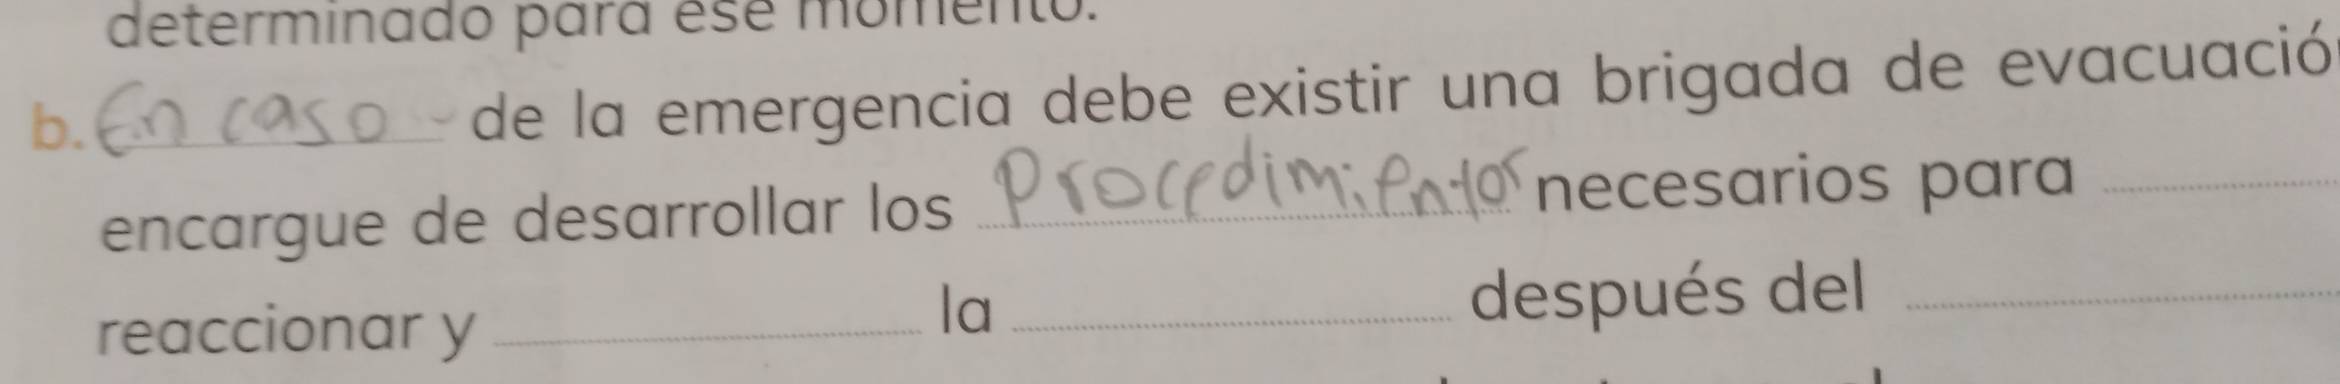 determinado para ese momento.
b. En caso de la emergencia debe existir una brigada de evacuació
encargue de desarrollar los procedimientos necesarios para
reaccionar y la después del